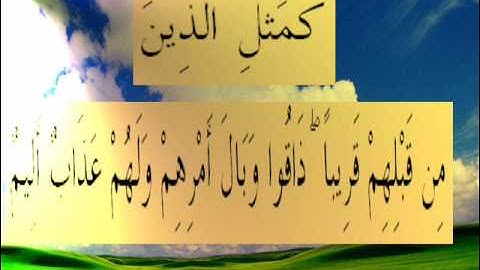 كَمَثَلِ الَّذِينَ
مِن قَبْلِهِمْ قَرِيباً ۖ ذَاقُوا وَبَالَ أَمْرِهِمْ وَلَهُمْ عَذَابٌ أَلِيمٌ